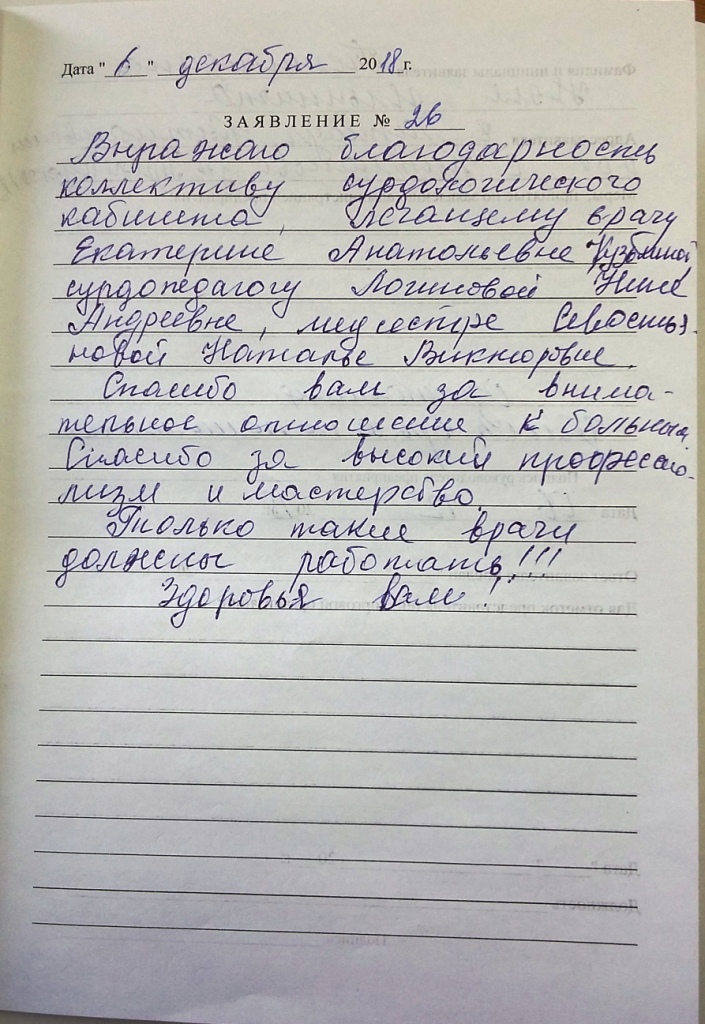 Дата " 6 " декабря 2018 г.
ЗАЯВЛЕНИЕ № 26
Выражаю благодарность
коллективу сурдологического
кабинета, лечащему врачу
Екатерине Анатольевне Кузьминой
сурдопедагогу Логиновой Нине
Андреевне, медсестре Севостья
новой Наталье Викторовне.
Спасибо вам за внима-
тельное отношение к больным.
Спасибо за высокий професио-
лизм и мастерство.
Только такие врачи
должны работать!!!
Здоровья вам!